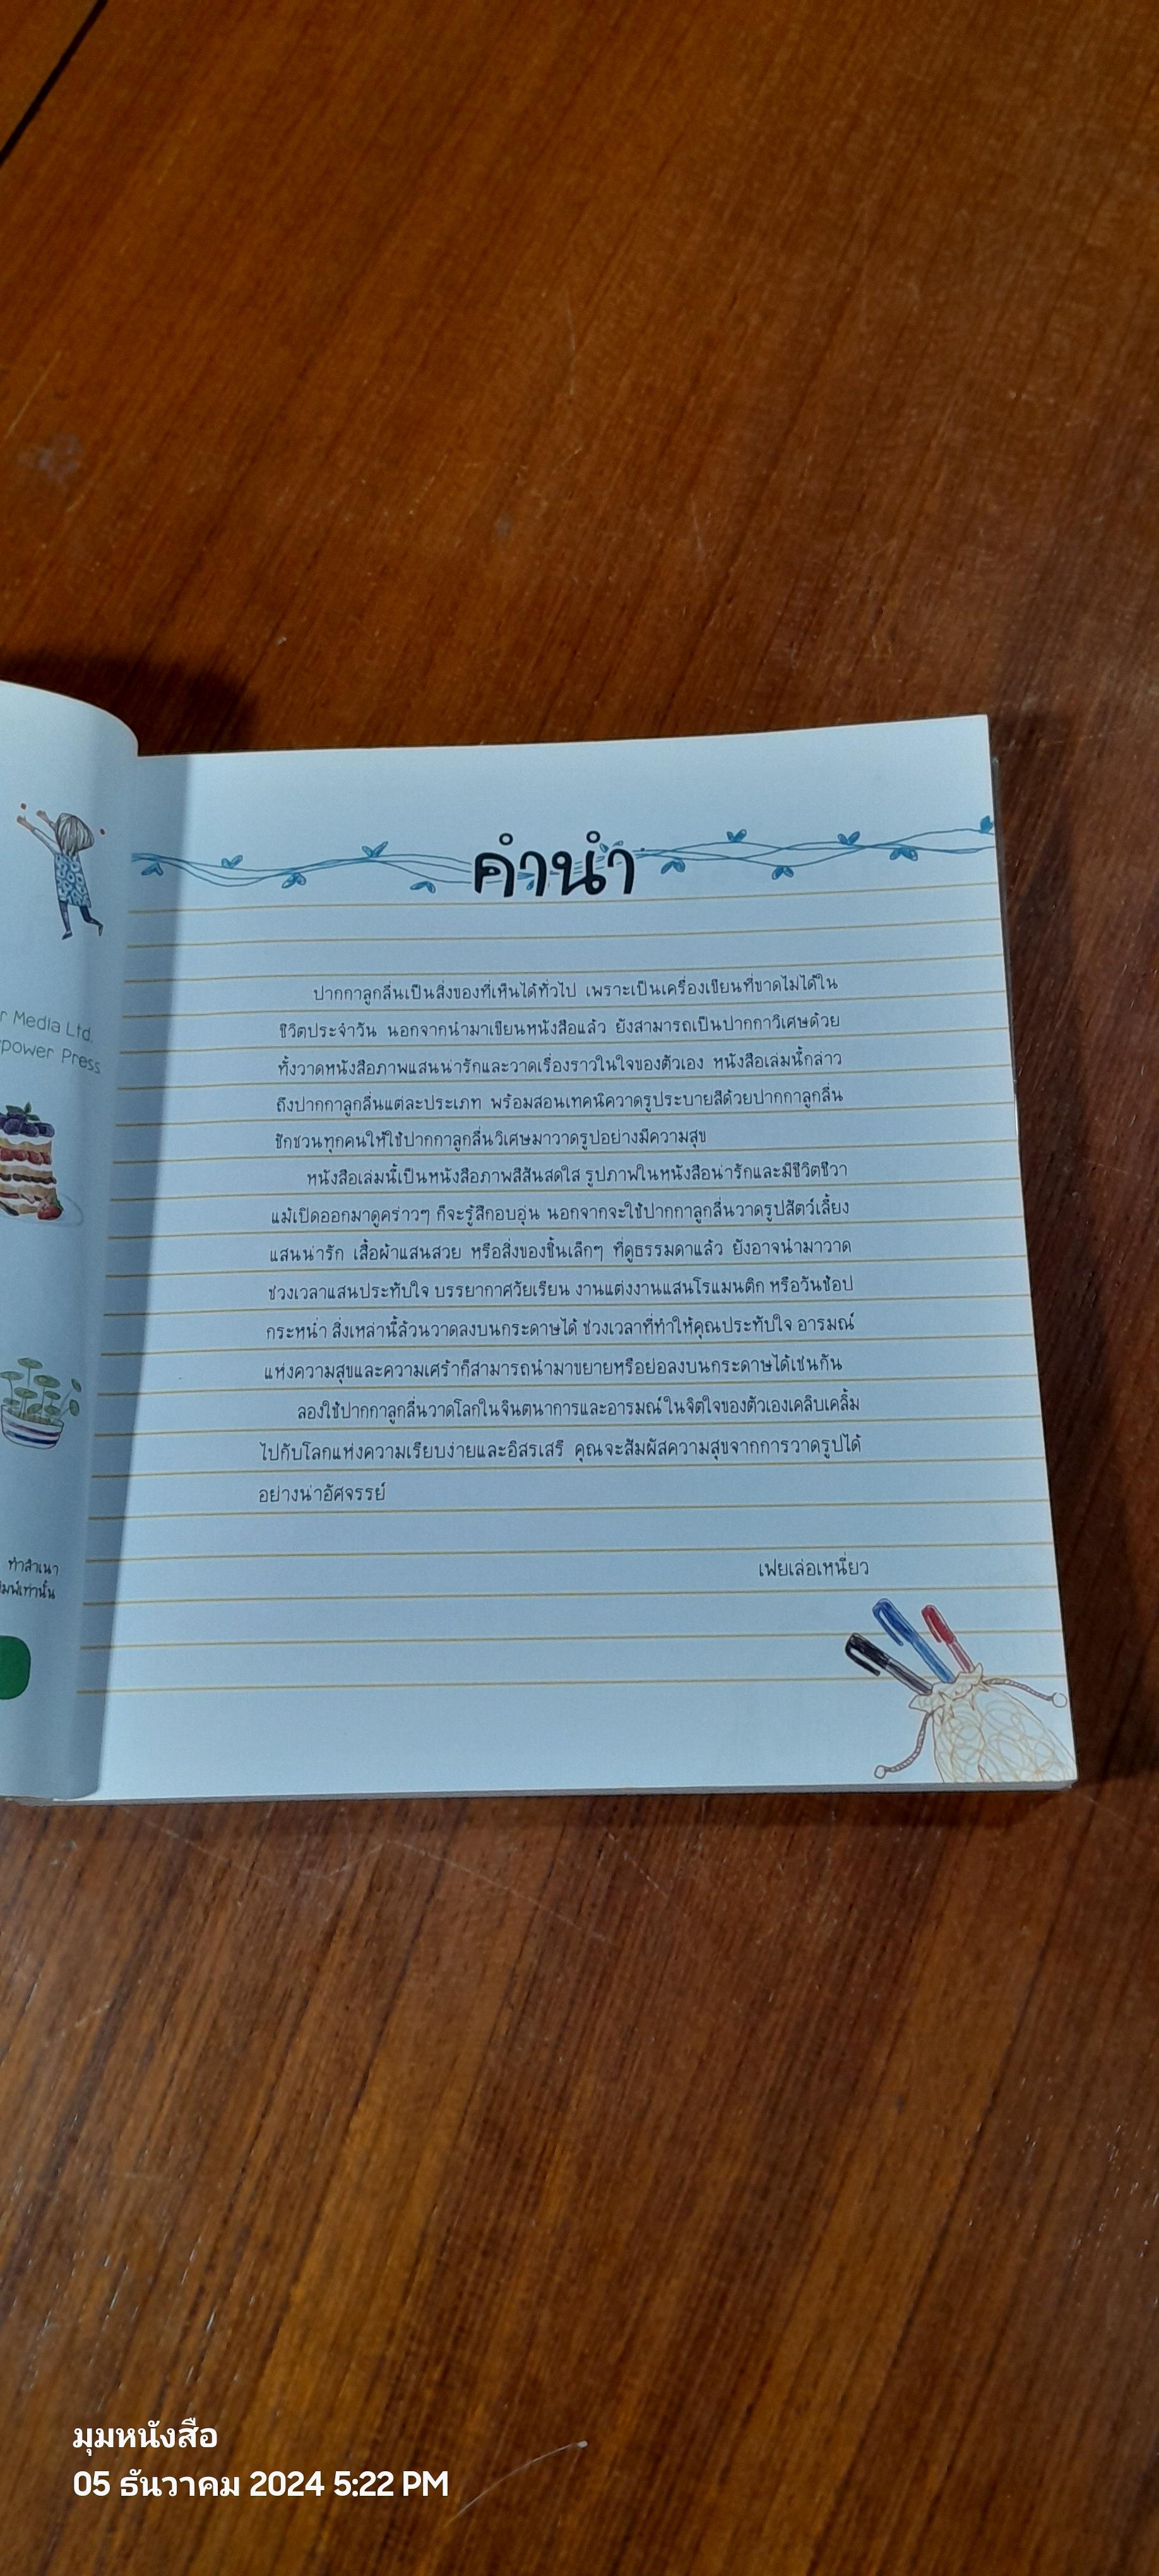 r Media Ltd.
power Press
ทำสำเนา
มพ์เท่านั้น
คำนำ
ปากกาลูกลื่นเป็นสิ่งของที่เห็นได้ทั่วไป เพราะเป็นเครื่องเขียนที่ขาดไม่ได้ใน
ชีวิตประจำวัน นอกจากนำมาเขียนหนังสือแล้ว ยังสามารถเป็นปากกาวิเศษด้วย
ทั้งวาดหนังสือภาพแสนน่ารักและวาดเรื่องราวในใจของตัวเอง หนังสือเล่มนี้กล่าว
ถึงปากกาลูกลื่นแต่ละประเภท พร้อมสอนเทคนิควาดรูประบายสีด้วยปากกาลูกลื่น
ชักชวนทุกคนให้ใช้ปากกาลูกลื่นวิเศษมาวาดรูปอย่างมีความสุข
หนังสือเล่มนี้เป็นหนังสือภาพสีสันสดใส รูปภาพในหนังสือน่ารักและมีชีวิตชีวา
แม้เปิดออกมาดูคร่าวๆ ก็จะรู้สึกอบอุ่น นอกจากจะใช้ปากกาลูกลื่นวาดรูปสัตว์เลี้ยง
แสนน่ารัก เสื้อผ้าแสนสวย หรือสิ่งของชิ้นเล็กๆ ที่ดูธรรมดาแล้ว ยังอาจนำมาวาด
ช่วงเวลาแสนประทับใจ บรรยากาศวัยเรียน งานแต่งงานแสนโรแมนติก หรือวันช้อป
กระหน่ำ สิ่งเหล่านี้ล้วนวาดลงบนกระดาษได้ ช่วงเวลาที่ทำให้คุณประทับใจ อารมณ์
แห่งความสุขและความเศร้าก็สามารถนำมาขยายหรือย่อลงบนกระดาษได้เช่นกัน
ลองใช้ปากกาลูกลื่นวาดโลกในจินตนาการและอารมณ์ในจิตใจของตัวเองเคลิบเคลิ้ม
ไปกับโลกแห่งความเรียบง่ายและอิสรเสรี คุณจะสัมผัสความสุขจากการวาดรูปได้
อย่างน่าอัศจรรย์
เฟยเล่อเหนี่ยว
มุมหนังสือ
05 ธันวาคม 2024 5:22 PM